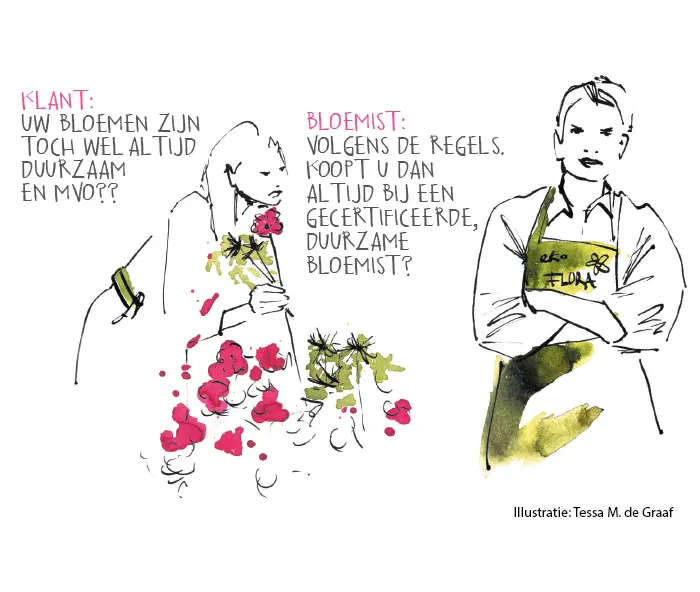 KLANT:
UW BLOEMEN ZIJN
TOCH WEL ALTIJD
DUURZAAM
EN MVO??
BLOEMIST:
VOLGENS DE REGELS.
KOOPT U DAN
ALTIJD BIJ EEN
GECERTIFICEERDE,
DUURZAME
BLOEMIST?
eko
FLORA
Illustratie: Tessa M. de Graaf